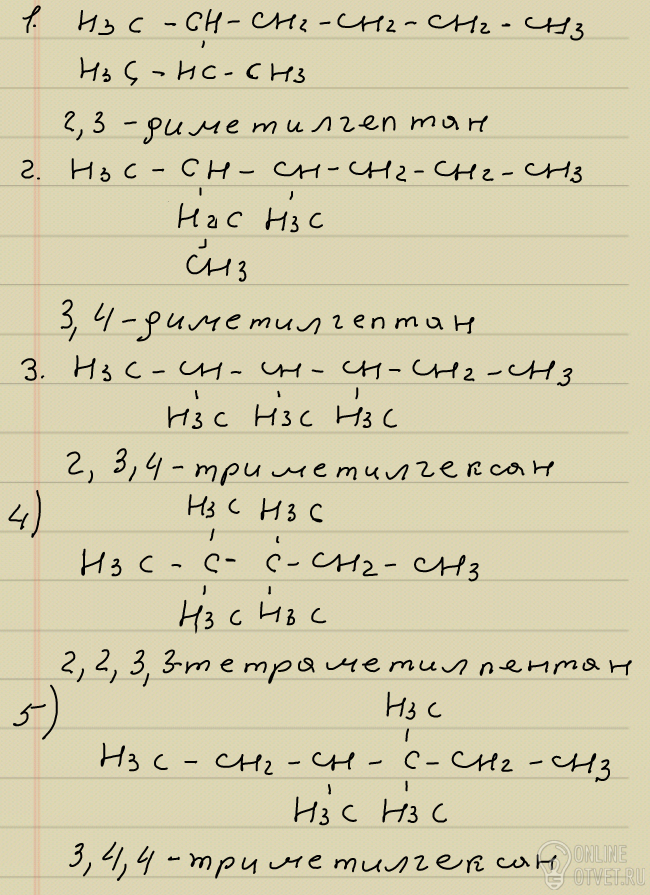 1. H3C - CH - CH2 - CH2 - CH2 - CH3
H3C - HC - CH3
2,3 - диметилгептан
2. H3C - CH - CH - CH2 - CH2 - CH3
H2C H3C
CH3
3,4 - диметилгептан
3. H3C - CH - CH - CH - CH2 - CH3
H3C H3C H3C
2, 3,4 - триметилгексан
H3C H3C
4)
H3C - C - C - CH2 - CH3
H3C H3C
2, 2, 3, 3-тетраметилпентан
5)
H3C
H3C - CH2 - CH - C - CH2 - CH3
H3C H3C
3,4,4 - триметилгексан
ONLINE
OTVET.RU